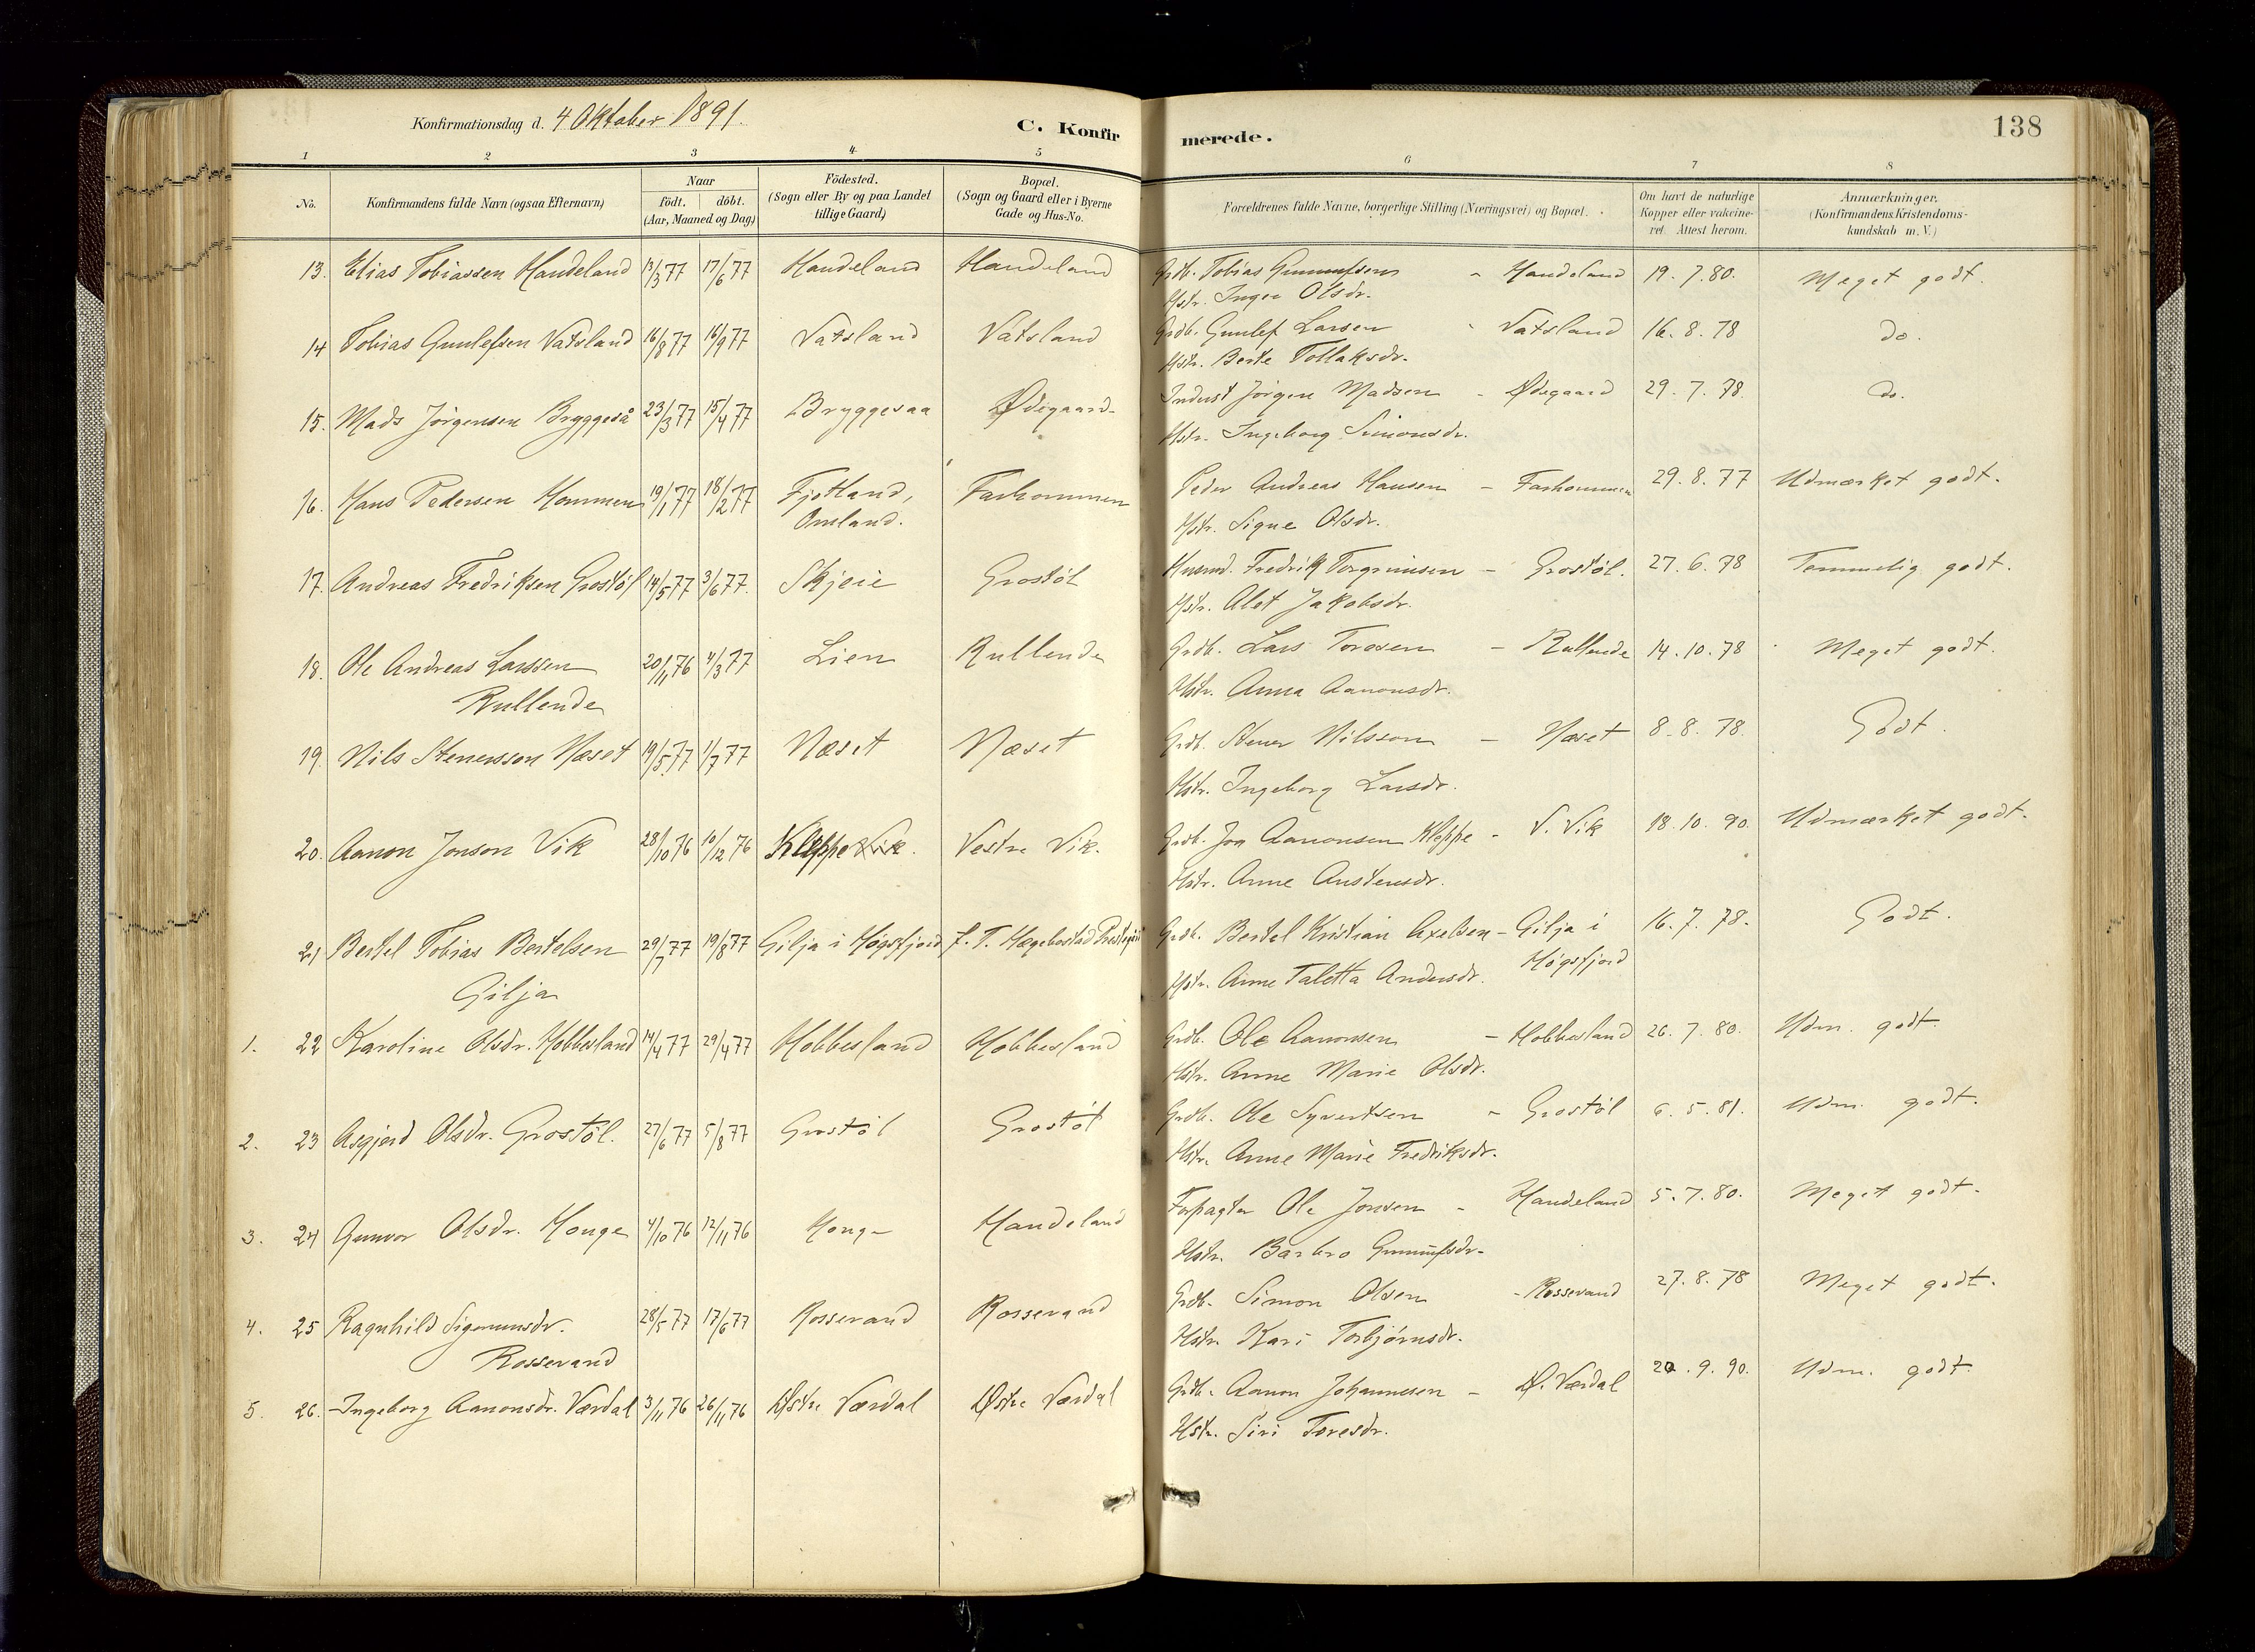 Konfirmationsdag d. 4 Oktober 1891.
C. Konfirmerede.
138
1 2 3 4 5 6 7 8
No.
Konfirmandens fulde Navn (ogsaa Efternavn)
Naar
födt. döbt.
(Aar, Maaned og Dag)
Födested.
(Sogn eller By og paa Landet
tillige Gaard)
Bopæl.
(Sogn og Gaard eller i Byerne
Gade og Hus-No.
Forældrenes fulde Navne, borgerlige Stilling (Næringsvei) og Bopæl.
Om havt de naturlige
Kopper eller vakcine-
ret. Attest herom.
Anmærkninger.
(Konfirmandens Kristendoms-
kundskab m. V.)
13. Elias Tobiassen Handeland 13/3 77 17/6 77 Handeland Handeland Grdb. Tobias Gunnufsen - Handeland 19.7.80. Meget godt.
Hstr. Inger Olsdr.
14 Tobias Gunlefsen Vatsland 16/8 77 16/9 77 Vatsland Vatsland Grdb. Gunlef Larsen - Vatsland 16.8.78 do.
Hstr. Berte Tollaksdr.
15. Mads Jörgensen Bryggeså 23/3 77 15/4 77 Bryggesaa Ødegaard Inderst Jörgen Madsen - Ødegaard 29.7.78. do.
Hstr. Ingeborg Simonsdr.
16. Hans Pedersen Hommen 19/1 77 18/2 77 Fjotland, Farhommen Peder Andreas Hansen - Farhommen 29.8.77 Udmærket godt.
Omland. Hstr. Signe Olsdr.
17. Andreas Fredriksen Grostøl 14/5 77 3/6 77. Skjeie Grostöl Husmd. Fredrik Torgrimsen - Grostöl. 27.6.78 Temmelig godt.
Hstr. Alet Jakobsdr.
18. Ole Andreas Larssen 20/11 76 4/3 77 Lien Rullende Grdb. Lars Toresen - Rullende 14.10.78 Meget godt.
Rullende Hstr. Anna Aanonsdr.
19. Nils Stenersson Næset 19/5 77 1/7 77 Næset Næset Grdb. Stener Nilsson - Næset 8.8.78. Godt.
Hstr. Ingeborg Larsdr.
20. Aanon Jonson Vik 28/10 76 10/12 76 Kleppe Vik. Vestre Vik. Grdb. Jon Aanonsen Kleppe - V. Vik 18.10.90. Udmærket godt.
Hstr. Anne Austensdr.
21 Bertel Tobias Bertelsen 29/7 77 19/8 77 Gilja i Høgsfjord f. T. Hægebostad Grdb. Bertel Kristian Axelsen - Gilja i 16.7.78. Godt.
Gilja Hstr. Anne Taletta Andersdr. Høgsfjord
1. 22 Karoline Olsdr. Hobbesland 14/4 77 29/4 77 Hobbesland Hobbesland Grdb. Ole Aanonsen - Hobbesland 26.7.80. Udm. godt.
Hstr. Anne Marie Olsdr.
2. 23 Asgjerd Olsdr. Grostöl. 27/6 77 5/8 77 Grostöl Grostöl Grdb. Ole Syvertsen - Grostöl 6.5.81. Udm. godt.
Hstr. Anne Marie Fredriksdr.
3. 24 Gunvor Olsdr. Houge 4/10 76 12/11 76 Houge Handeland Forpagter Ole Jonsen - Handeland 5.7.80. Meget godt.
Hstr. Barbro Gunnufsdr.
4. 25 Ragnhild Sigemunsdr. 28/5 77 17/6 77 Rossevand Rossevand Grdb. Simon Olsen - Rossevand 27.8.78 Meget godt.
Rossevand Hstr. Kari Torbjørnsdr.
5. 26. Ingeborg Aanonsdr. Værdal 3/11 76 26/11 76 Østre Værdal Østre Værdal Grdb. Aanon Johannesen - Ø. Værdal 20.9.90. Udm. godt.
Hstr. Siri Toresdr.